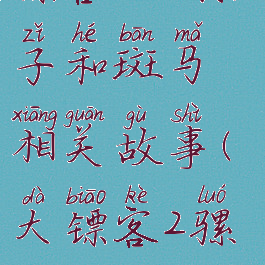 zǐ hé bān mǎ
子和斑马
xiāng guān gù shì
相关故事(
dà biāo kè luó
大镖客2骡